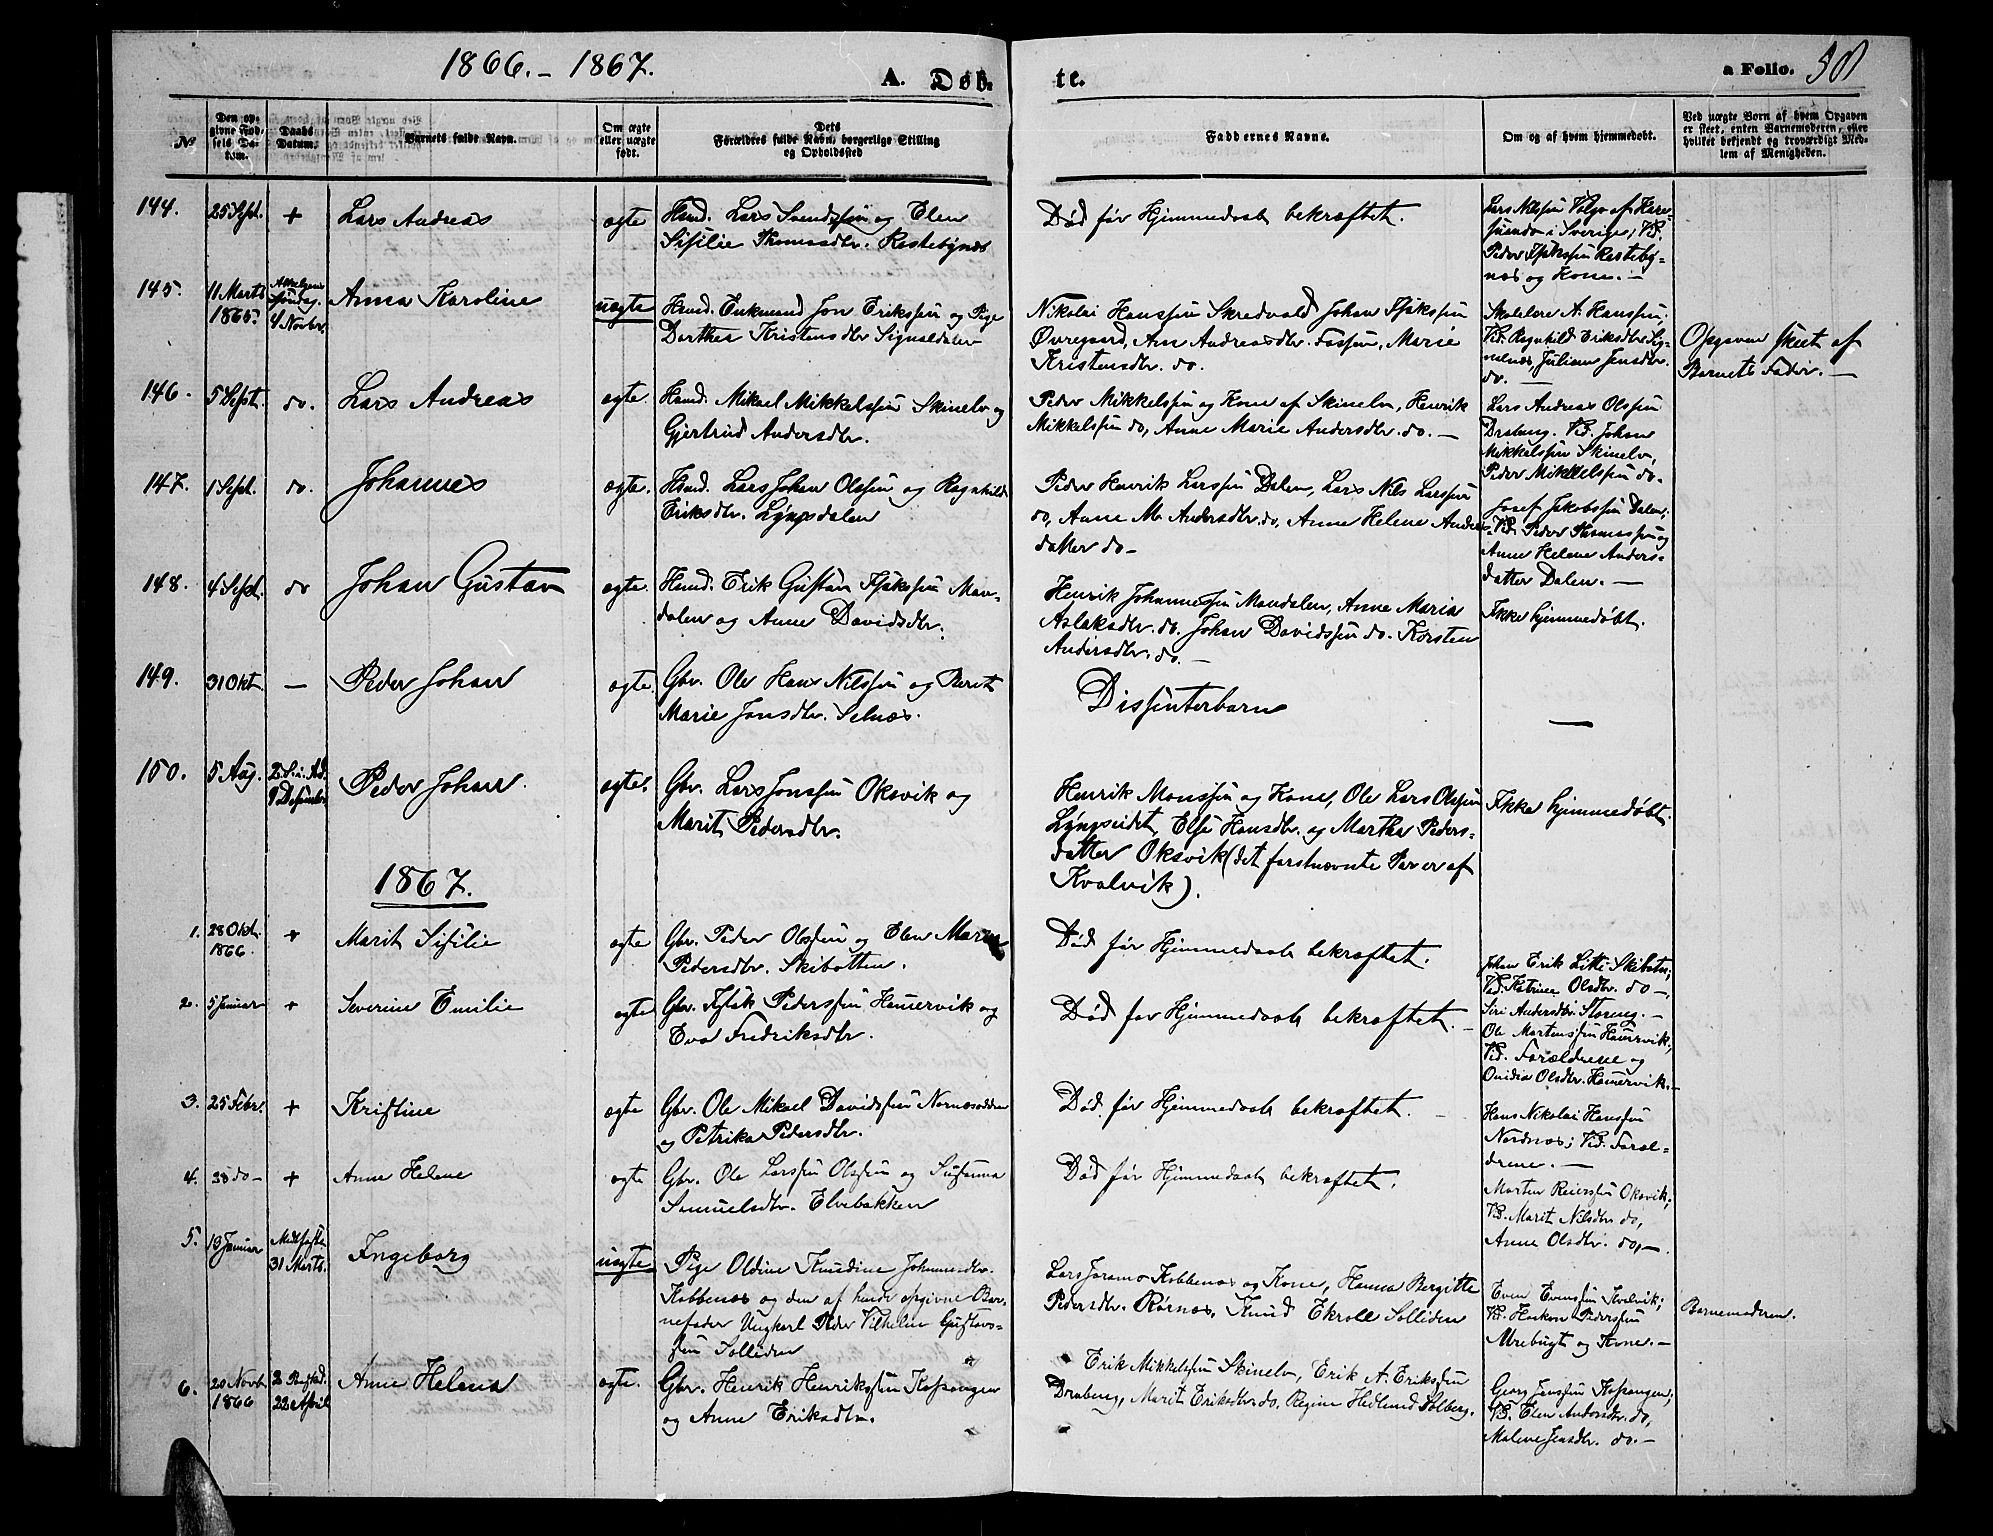 1866. - 1867.
A. Døb-
te.
a Folio.
No
Den op-
givne Fød-
sels Da-
tum.
Daabs
Datum.
Barnets fulde Navn.
Om ægte
eller uægte
født.
Dets
Forældres fulde Navn, borgerlige Stilling
og Opholdssted
Faddernes Navne.
Om og af hvem hjemmedøbt.
Ved uægte Børn af hvem Opgaven
er skeet, enten Barnemoderen, eller
hvilket bekjendt og troværdigt Med-
lem af Menigheden.
144. 25 Sept. + Lars Andreas ægte Huusmd. Lars Svendssen og Elen
Sisilie Thomasdtr. Rastebynæs
Død før Hjemmedaab bekræftet.
Lars Nilssen Valgo af Kare-
suando i Sverige; Vid.
Peder Isakssen Rasteby-
næs og Kone. -
145. 11 Marts
1865. Allehgens
Søndag.
4 Novbr. Anna Karoline uægte Huusmd. Enkemand Jon Erikssen og Pige
Dorthea Kristensdtr. Signaldalen
Nikolai Hanssen Skredvold, Johan Isakssen
Øvregaard, Ane Andreasdtr. Fossen, Marie
Kristensdtr. do.
Skolelærer A. Hanssen;
Vid. Ragnhild Eriksdtr. Sig-
nalnæs, Juliane Jensdtr.
do. -
Opgaven skeet af
Barnets Fader. -
146. 5 Sept. do. Lars Andreas ægte. Huusmd. Mikael Mikkelssen Skinelv og
Gjertrud Andersdtr.
Peder Mikkelssen og Kone af Skinelv, Henrik
Mikkelssen do, Anne Marie Andersdtr. do. -
Lars Andreas Olssen
Draberg. Vid. Johan
Mikkelssen Skinelv,
Peder Mikkelssen do.
147. 1 Sept. do. Johannes ægte. Huusmd. Lars Johan Olssen og Ragnhild
Eriksdtr. Lyngsdalen
Peder Henrik Larssen Dalen, Lars Nils Larssen
do, Anne M. Andersdtr. do, Anne Helene Anders-
datter do -
Josef Jakobssen Dalen;
Vid. Peder Rasmussen og
Anne Helene Anders-
datter Dalen. -
148. 4 Sept. do Johan Gustav ægte. Huusmd. Erik Gustav Isakssen Man-
dalen og Anne Davidsdtr.
Henrik Johannessen Mandalen, Anne Maria
Aslaksdtr. do. Johan Davidssen do. Korsten
Andersdtr. do. -
Ikke hjemmedøbt.
149. 31 Okt - Peder Johan ægte. Gbr. Ole Hans Nilssen og Berit
Marie Jonsdtr. Selnæs.
Dissenterbarn
-
150. 5 Aug. 2. S. i. Ad.
9 Desember Peder Johan. ægte. Gbr. Lars Jonssen Oksvik og
Marit Pedersdtr.
Henrik Monssen og Kone, Ole Lars Olssen
Lyngseidet, Else Hansdtr. og Martha Peders-
datter Oksvik (det førstnævnte Par er af
Kvalvik).
Ikke hjemmedøbt.
1867.
1. 28 Okt.
1866. + Marit Sisilie ægte Gbr. Peder Olssen og Elen Maria
Pedersdtr. Skibotten.
Død før Hjemmedaab bekræftet.
Johan Erik Litti Skibotn;
Vid. Katrine Olsdtr. do -,
Siri Andersdtr. Storeng. -
2. 5 Januar + Severine Emilie ægte Gbr. Isak Pederssen Hamervik og
Eva Fredriksdtr.
Død før Hjemmedaab bekræftet. -
Ole Martenssen Hamervik;
Vid. Forældrene og
Ovidia Olsdtr. Hamervik. -
3. 25 Febr. + Kristine ægte Gbr. Ole Mikael Davidssen Nornæsodden
og Petrika Pedersdtr.
Død før Hjemmedaab bekræftet. -
Hans Nikolai Hanssen
Nordnæs; Vid. Foræl-
drene. -
4. 28 do - + Anne Helene ægte Gbr. Ole Larssen Olssen og Susanna
Samuelsdtr. Elvebakken
Død før Hjemmedaab bekræftet.
Morten Reierssen Oksvik;
Vid. Marit Nilsdtr. do,
Anne Olsdtr. do. -
5. 19 Januar Midfaste
31 Marts. Ingeborg uægte Pige Oldine Knudine Johannesdtr.
Kobbenæs og den af hende opgivne Bar-
nefader Ungkarl Peder Vilhelm Gustavs-
sen Solliden
Lars Joramo Kobbenæs og Kone, Hanna Bergitte
Pedersdtr. Rørnæs, Knud Ekroll Solliden
Even Evenssen Kvalvik;
Vid. Haakon Pederssen
Ørebugt og Kone. -
Barnemoderen.
6. 20 Novb.
1866 2 Paaskd.
22 April Anne Helena ægte. Gbr. Henrik Henrikssen Kofsangen
og Anne Eriksdtr.
Erik Mikkelssen Skinelv, Erik A. Erikssen
Draberg, Marit Eriksdtr. do. Regine Hedlund Solberg.
Georg Jenssen Kofsangen;
Vid. Elen Andersdtr. do,
Malene Jensdtr. do. -